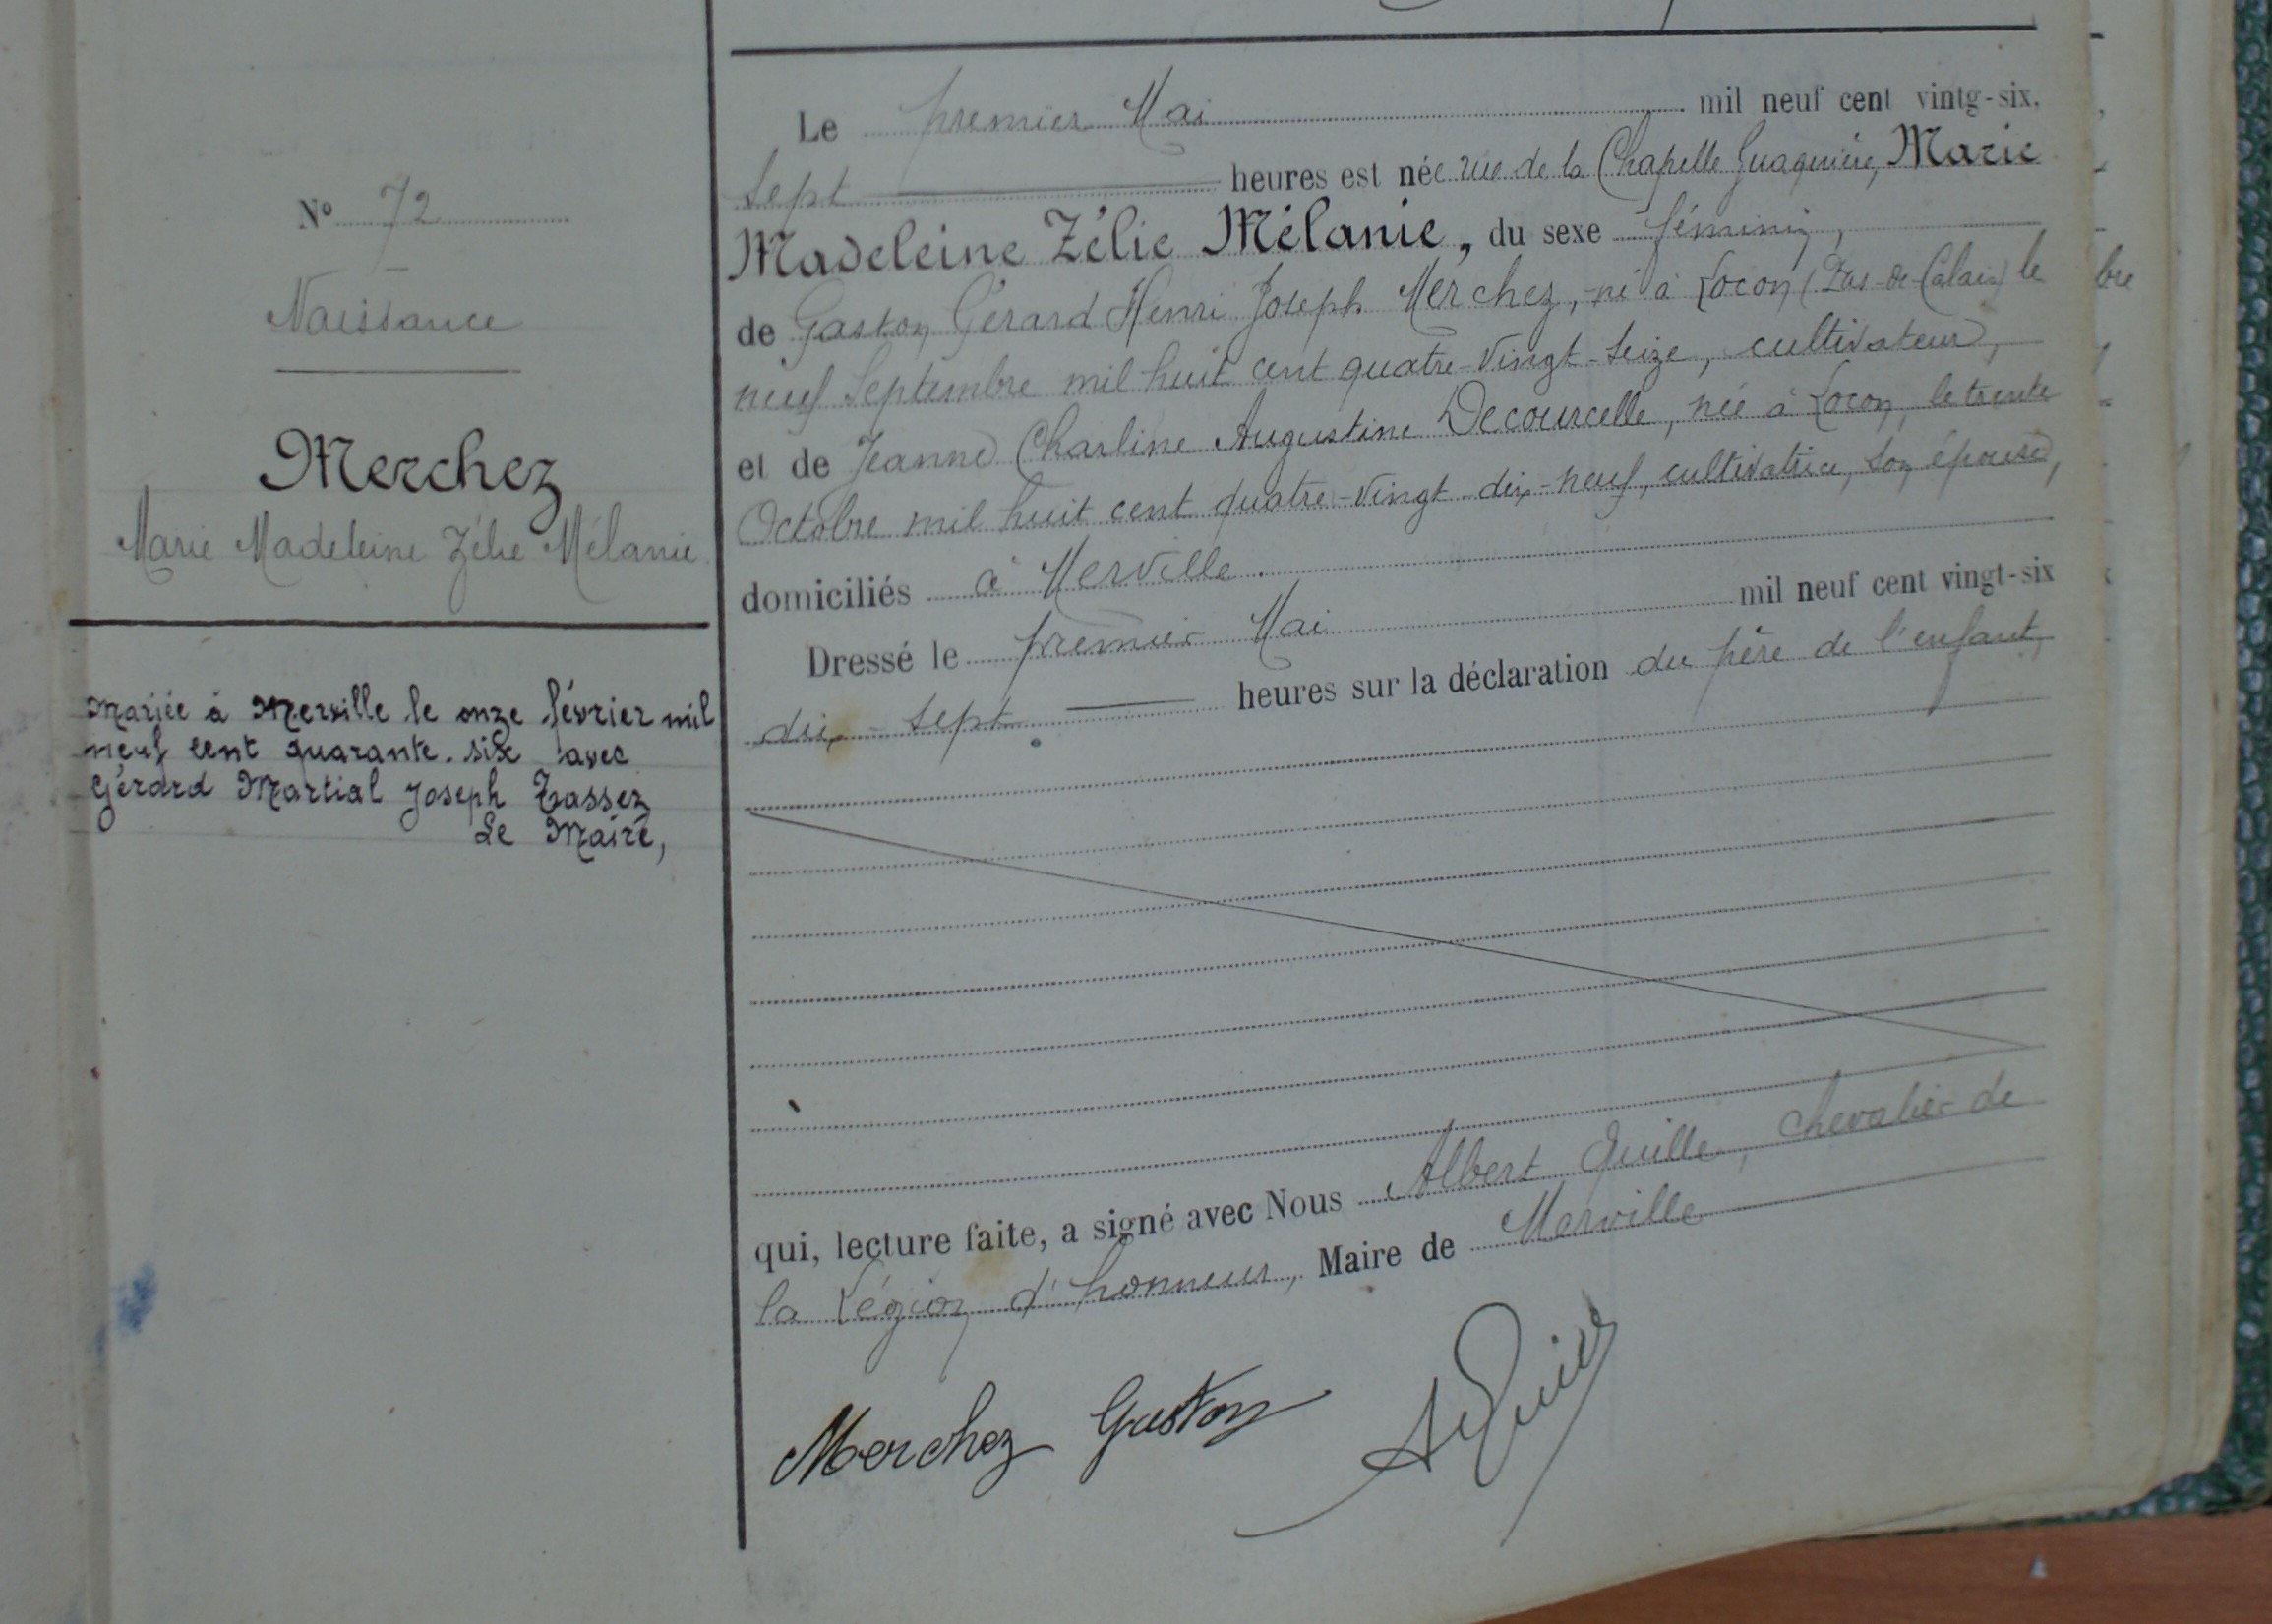 N° 72
Naissance
Merchez
Marie Madeleine Zélie Mélanie
Mariée à Merville le onze février mil
neuf cent quarante-six avec
Gérard Martial Joseph Tassez
Le Maire,
Le premier Mai mil neuf cent vintg-six,
Sept heures est née rue de la Chapelle Marie
Madeleine Zélie Mélanie, du sexe féminin,
de Gaston Gérard Henri Joseph Merchez, né à Locon (Pas-de-Calais) le
neuf Septembre mil huit cent quatre-vingt-seize, cultivateur,
et de Jeanne Charline Augustine Decourcelle, née à Locon, le trente
Octobre mil huit cent quatre-vingt-dix-neuf, cultivatrice, son épouse,
domiciliés à Merville.
Dressé le premier Mai mil neuf cent vingt-six
dix-sept heures sur la déclaration du père de l'enfant,
qui, lecture faite, a signé avec Nous Albert Quille, chevalier de
la Légion d'honneur, Maire de Merville
Merchez Gaston
AQuille
bre